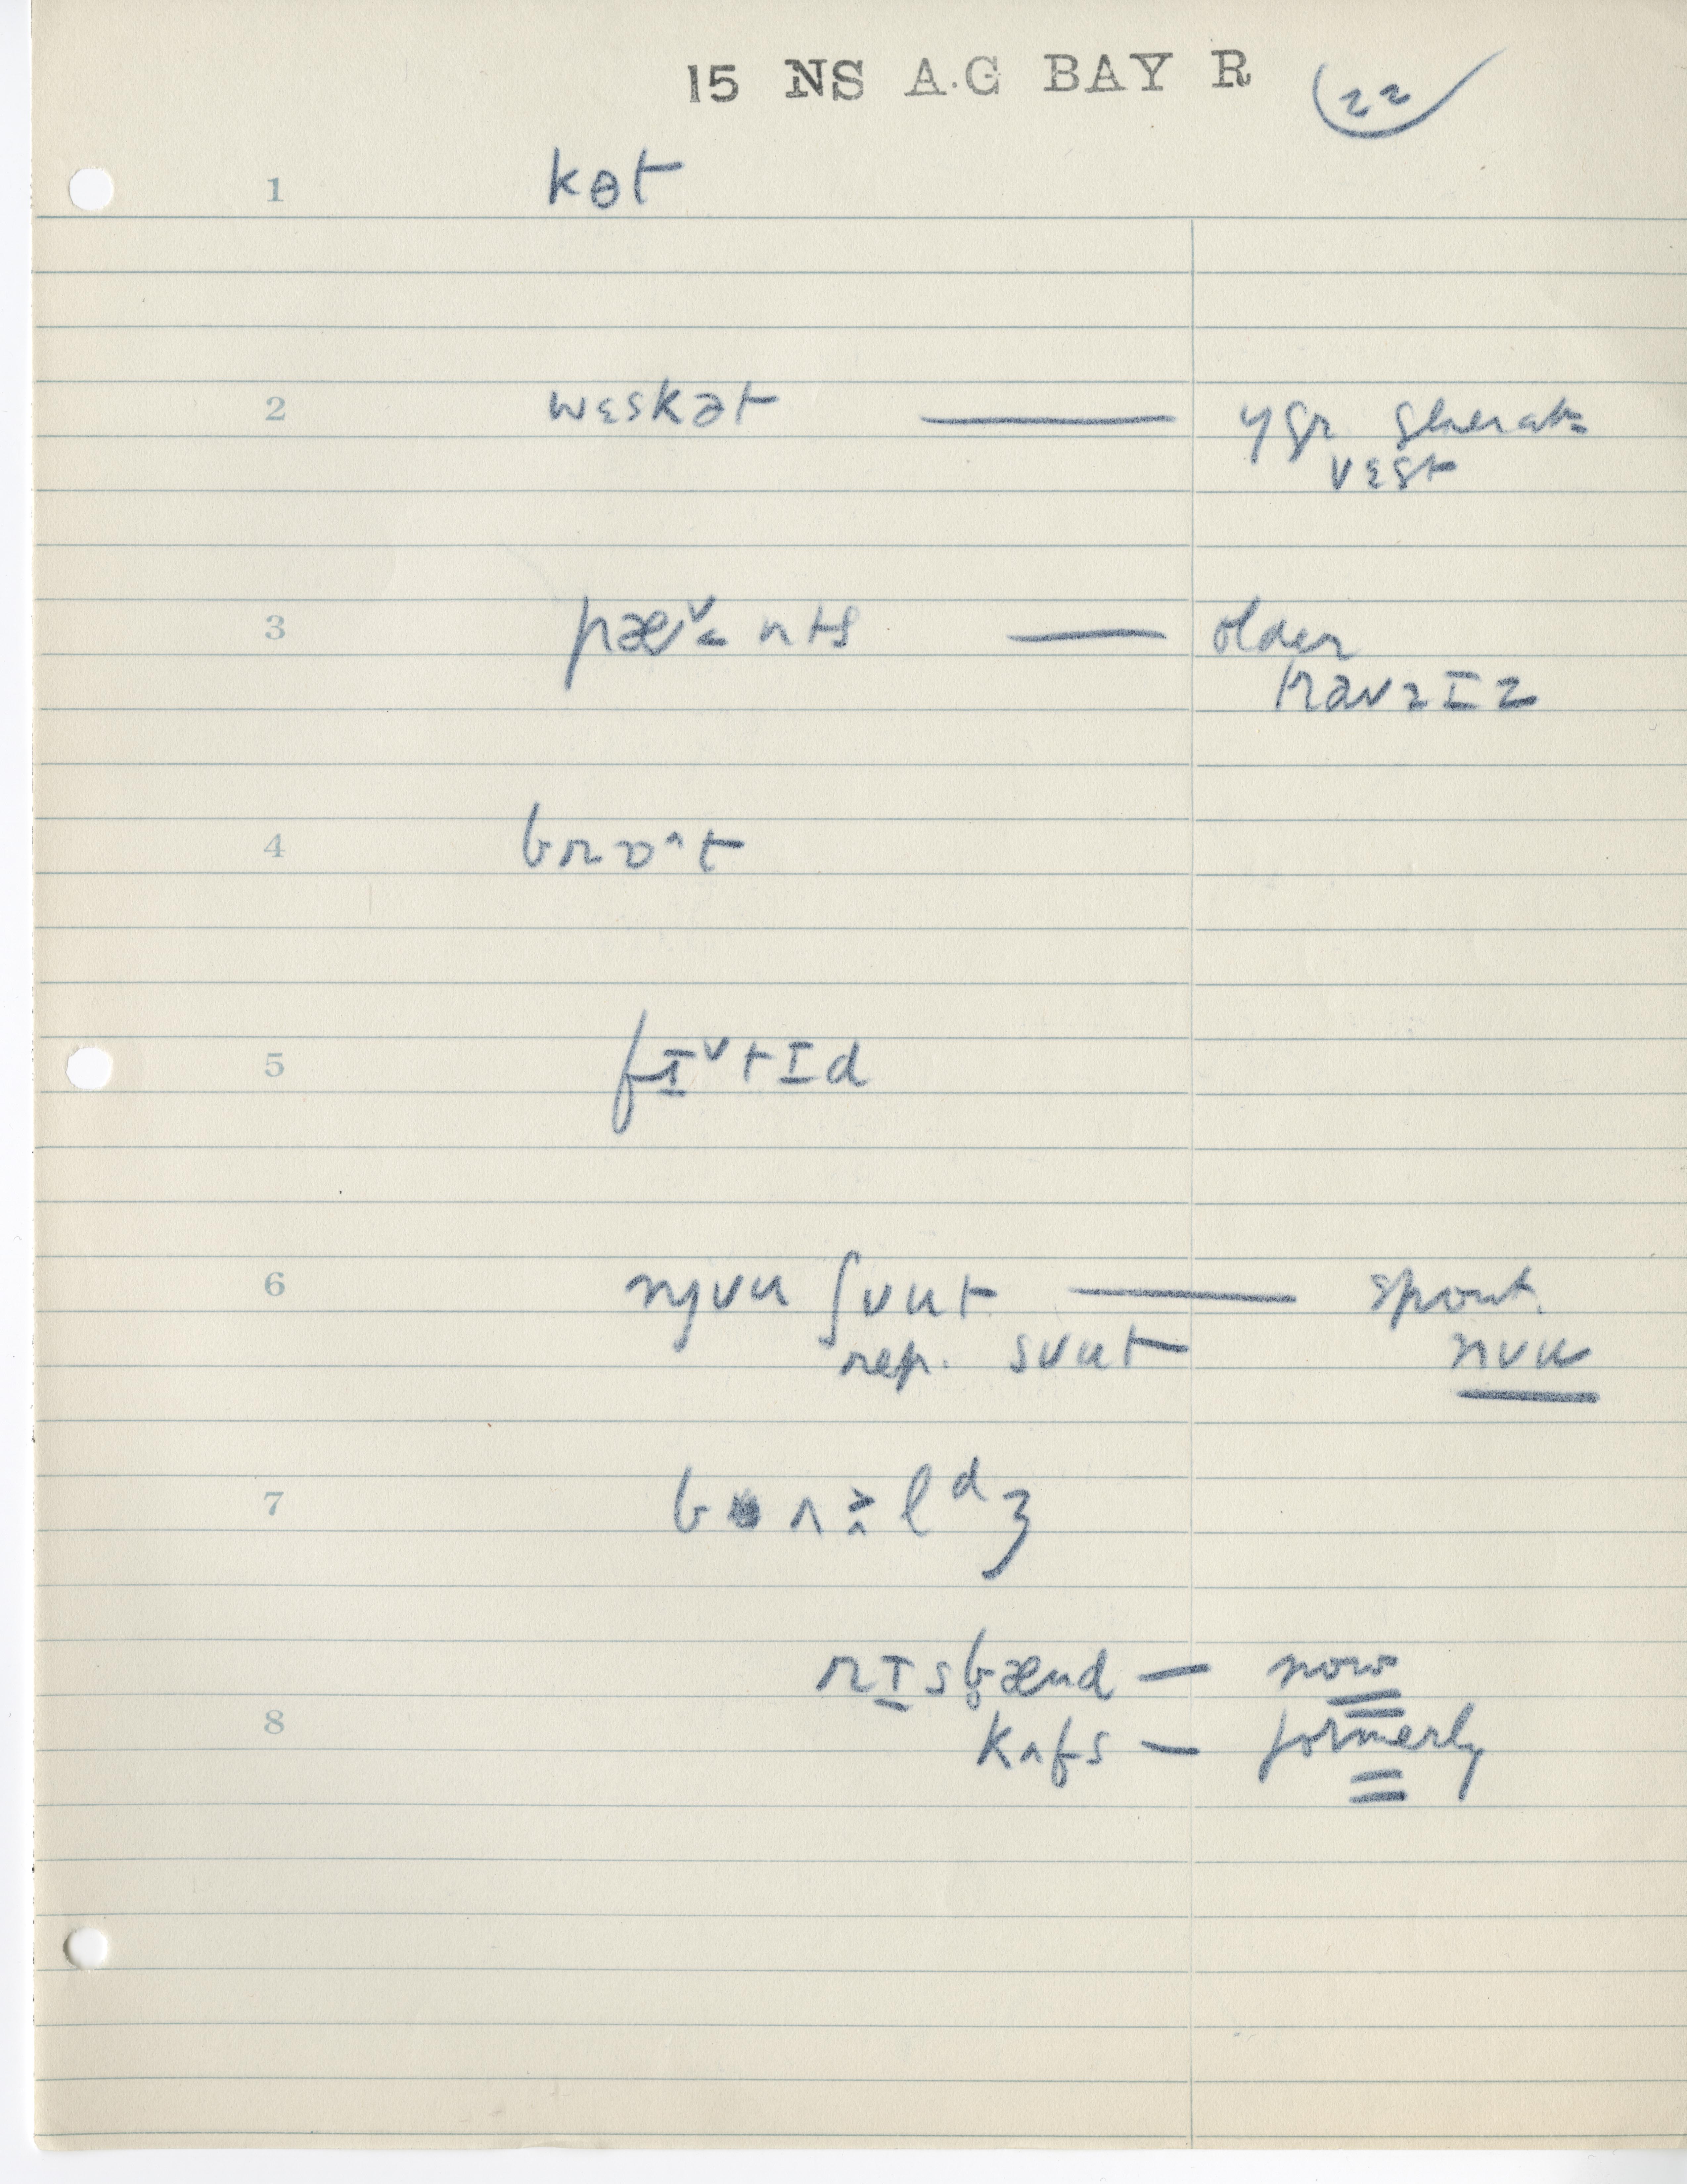 15 NS A.G BAY R 22
1 kɵt
2 wɛskət — ygr generatn
vɛst
3 pæ˅˂nts — older
trauzɪz
4 brɒ^t
5 fɪ˅tɪd
6 njʋu ʃʋut — spont.
rep. sʋut nʋu
7 bʌlᵈʒ
rɪsb̥ænd — now
8 kʌfs — formerly